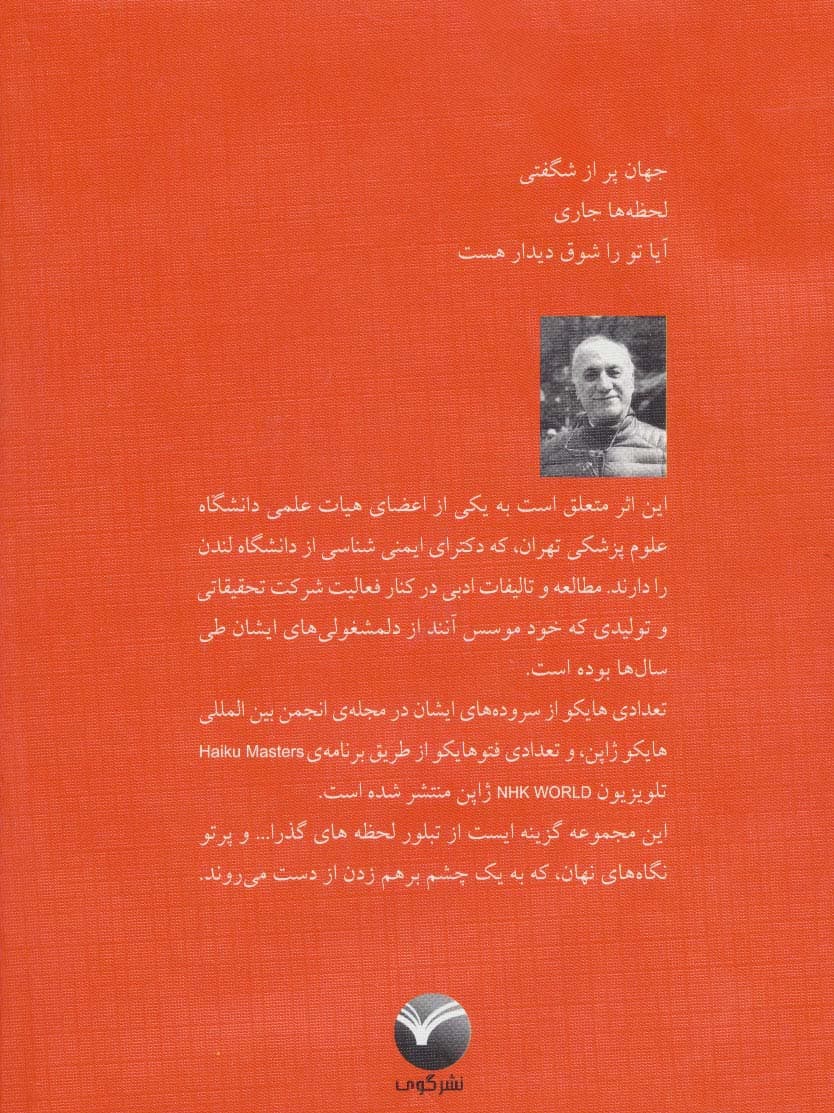 جهان پر از شگفتی
لحظه‌ها جاری
آیا تو را شوق دیدار هست
این اثر متعلق است به یکی از اعضای هیات علمی دانشگاه
علوم پزشکی تهران، که دکترای ایمنی شناسی از دانشگاه لندن
را دارند. مطالعه و تالیفات ادبی در کنار فعالیت شرکت تحقیقاتی
و تولیدی که خود موسس آنند از دلمشغولی‌های ایشان طی
سال‌ها بوده است.
تعدادی هایکو از سروده‌های ایشان در مجله‌ی انجمن بین المللی
هایکو ژاپن، و تعدادی فتوهایکو از طریق برنامه‌ی Haiku Masters
تلویزیون NHK WORLD ژاپن منتشر شده است.
این مجموعه گزینه ایست از تبلور لحظه های گذرا... و پرتو
نگاه‌های نهان، که به یک چشم برهم زدن از دست می‌روند.
نشرگوی